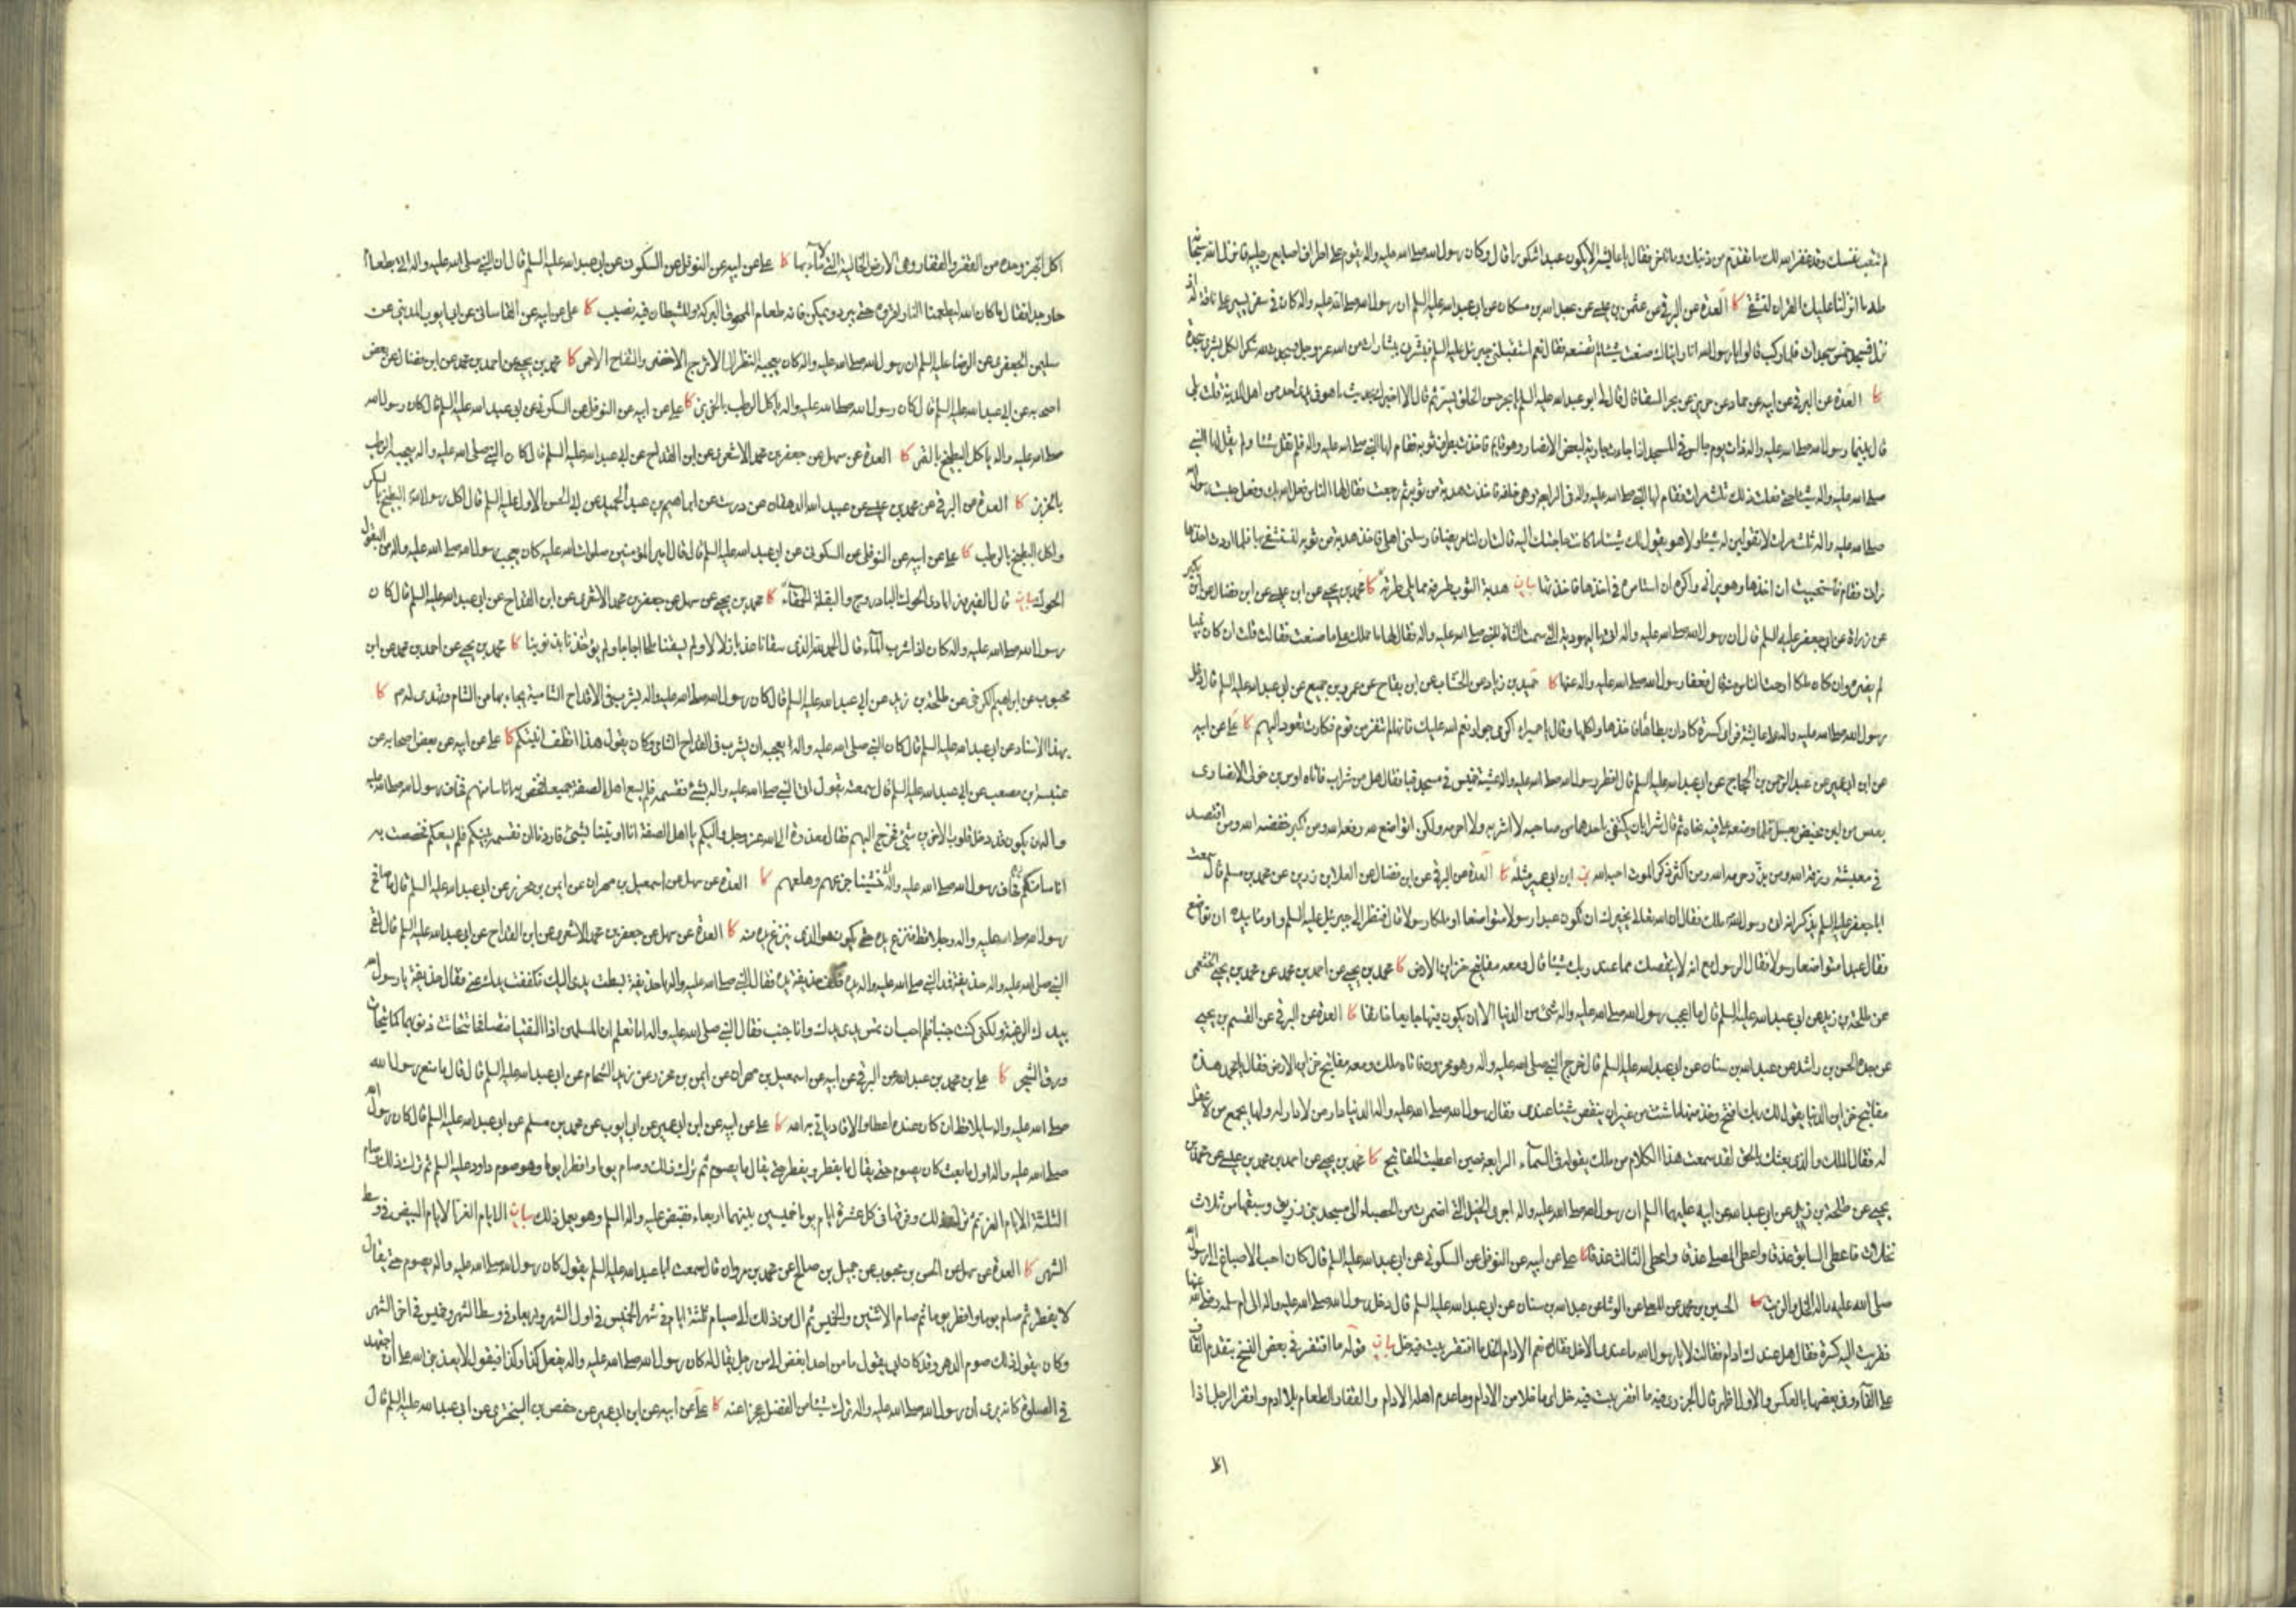 لم تتعب نفسك وقد غفر الله لك ما تقدم من ذنبك وما تاخر فقال يا عايشة الا اكون عبدا شكورا قال وكان رسول الله صلى الله عليه واله يقوم على اطراف اصابع رجليه فانزل الله سبحانه
طه ما انزلنا عليك القران لتشقى كا العدة عن البرقي عن عثمن بن عيسى عن عبد الله بن مسكان عن ابي عبد الله عليه السلم ان رسول الله صلى الله عليه واله كان في سفر يسير على ناقة له اذ
نزل فسجد خمس سجدات فلما ركب قالوا يا رسول الله انا رايناك صنعت شيئا لم تصنعه فقال نعم استقبلني جبرئيل عليه السلم فبشرني ببشارات من الله عز وجل فسجدت لله شكرا لكل بشرى سجدة
كا العدة عن البرقي عن ابيه عن حماد عن حريز عن بحر السقا قال قال لي ابو عبد الله عليه السلم يا بحر حسن الخلق يسر ثم قال الا اخبرك بحديث ما هو في يدي احد من اهل المدينة قلت بلى
قال بينما رسول الله صلى الله عليه واله ذات يوم جالس في المسجد اذ جاءت جارية لبعض الانصار وهو قايم فاخذت بطرف ثوبه فقام لها النبي صلى الله عليه واله فلم تقل شيئا ولم يقل لها النبي
صلى الله عليه واله شيئا حتى فعلت ذلك ثلث مرات فقام لها النبي صلى الله عليه واله في الرابعة وهي خلفه فاخذت هدبة من ثوبه ثم رجعت فقال لها الناس فعل الله بك وفعل حبست رسول الله
صلى الله عليه واله ثلث مرات لا تقولين له شيئا ولا هو يقول لك شيئا ما كانت حاجتك اليه قالت ان لنا مريضا فارسلني اهلي لاخذ هدبة من ثوبه ليستشفي بها فلما اردت اخذها
راني فقام فاستحييت ان اخذها وهو يراني واكره ان استامره في اخذها فاخذتها بيان هدبة الثوب طرفه مما يلي طرته كا محمد بن يحيى عن ابن عيسى عن ابن فضال عن ابن بكير
عن زرارة عن ابي جعفر عليه السلم قال ان رسول الله صلى الله عليه واله اتي باليهودية التي سمت الشاة للنبي صلى الله عليه واله فقال لها ما حملك على ما صنعت فقالت قلت ان كان نبيا
لم يضره وان كان ملكا ارحت الناس منه قال فعفا رسول الله صلى الله عليه واله عنها كا حميد بن زياد عن الخشاب عن ابن بقاح عن عمرو بن جميع عن ابي عبد الله عليه السلم قال دخل
رسول الله صلى الله عليه واله على عايشة فراى كسرة كاد ان يطاها فاخذها واكلها وقال يا حميراء اكرمي جوار نعم الله عليك فانها لم تنفر من قوم فكادت تعود اليهم كا علي عن ابيه
عن ابن ابي عمير عن عبد الرحمن بن الحجاج عن ابي عبد الله عليه السلم قال افطر رسول الله صلى الله عليه واله عشية خميس في مسجد قبا فقال هل من شراب فاتاه اوس بن خولى الانصارى
بعس من لبن مخيض بعسل فلما وضعه على فيه نحاه ثم قال شرابان يكتفى باحدهما من صاحبه لا اشربه ولا احرمه ولكن اتواضع لله فانه من تواضع لله رفعه الله ومن تكبر خفضه الله ومن اقتصد
في معيشته رزقه الله ومن بذر حرمه الله ومن اكثر ذكر الموت احبه الله ين ابن ابي عمير مثله كا العدة عن البرقي عن ابن فضال عن العلا بن رزين عن محمد بن مسلم قال سمعت
ابا جعفر عليه السلم يذكر انه اتى رسول الله ملك فقال ان الله تعالى يخيرك ان تكون عبدا رسولا متواضعا او ملكا رسولا قال فنظر الى جبرئيل عليه السلم واومأ بيده ان تواضع
فقال عبدا متواضعا رسولا فقال الرسول مع انه لا ينقصك مما عند ربك شيئا قال ومعه مفاتيح خزاين الارض كا محمد بن يحيى عن احمد بن محمد عن محمد بن يحيى الخثعمي
عن طلحة بن زيد عن ابي عبد الله عليه السلم قال ما اعجب رسول الله صلى الله عليه واله شئ من الدنيا الا ان يكون فيها جايعا خائفا كا العدة عن البرقي عن القسم بن يحيى
عن جده الحسن بن راشد عن عبد الله بن سنان عن ابي عبد الله عليه السلم قال خرج النبي صلى الله عليه واله وهو محزون فاتاه ملك ومعه مفاتيح خزاين الارض فقال يا محمد هذه
مفاتيح خزاين الدنيا يقول لك ربك افتح وخذ منها ما شئت من غير ان ينقص شيئا عندي فقال رسول الله صلى الله عليه واله الدنيا دار من لا دار له ولها يجمع من لا عقل
له فقال الملك والذي بعثك بالحق لقد سمعت هذا الكلام من ملك يقوله في السماء الرابعة حين اعطيت المفاتيح كا محمد بن يحيى عن احمد بن محمد بن عيسى عن محمد بن
يحيى عن طلحة بن زيد عن ابي عبد الله عن ابيه عليهما السلم ان رسول الله صلى الله عليه واله اجرى الخيل التي اضمرت من الحصباء الى مسجد بني زريق وسبقها من ثلاث
نخلات فاعطى السابق عذقا واعطى المصلي عذقا واعطى الثالث عذقا كا علي عن ابيه عن النوفلي عن السكوني عن ابي عبد الله عليه السلم قال كان احب الاصباغ الى رسول الله
صلى الله عليه واله الخل والزيت كا الحسين بن محمد عن المعلى عن الوشا عن عبد الله بن سنان عن ابي عبد الله عليه السلم قال دخل رسول الله صلى الله عليه واله الى ام سلمه رضي الله عنها
فقربت اليه كسرة فقال هل عندك ادام فقالت لا يا رسول الله ما عندي الا خل فقال نعم الادام الخل ما افتقر بيت فيه خل بيان قوله ما افتقر في بعض النسخ بتقديم القاف
على الفاء وفي بعضها بالعكس والاول اظهر قال الجزري فيه ما اقفر بيت فيه خل اي ما خلا من الادام وما عدم اهله الادام والقفار الطعام بلا ادم واقفر الرجل اذا
اكل
اكل الخبز وحده من القفر والقفار وهي الارض الخالية التي لا ماء بها كا علي عن ابيه عن النوفلي عن السكوني عن ابي عبد الله عليه السلم قال ان النبي صلى الله عليه واله اتي بطعام
حار جدا فقال ما كان الله ليطعمنا النار اقروه حتى يبرد ويمكن فانه طعام الممحوق البركة وللشيطان فيه نصيب كا علي عن ابيه عن القاساني عن ابي ايوب المديني عن
سليمن الجعفري عن الرضا عليه السلم ان رسول الله صلى الله عليه واله كان يعجبه النظر الى الاترج الاخضر والتفاح الاحمر كا محمد بن يحيى عن احمد بن محمد عن ابن فضال عن بعض
اصحابه عن ابي عبد الله عليه السلم قال كان رسول الله صلى الله عليه واله ياكل الرطب بالخربز كا علي عن ابيه عن النوفلي عن السكوني عن ابي عبد الله عليه السلم قال كان رسول الله
صلى الله عليه واله ياكل البطيخ بالتمر كا العدة عن سهل عن جعفر بن محمد الاشعري عن ابن القداح عن ابي عبد الله عليه السلم قال كان النبي صلى الله عليه واله يعجبه الرطب
بالخربز كا العدة عن البرقي عن محمد بن عيسى عن عبيد الله الدهقان عن درست عن ابراهيم بن عبد الحميد عن ابي الحسن الاول عليه السلم قال اكل رسول الله البطيخ بالسكر
واكل البطيخ بالرطب كا علي عن ابيه عن النوفلي عن السكوني عن ابي عبد الله عليه السلم قال قال امير المؤمنين صلوات الله عليه كان يعجب رسول الله صلى الله عليه واله من البقول
الحوك بيان قال الفيروزابادي الحوك الباذروج والبقلة الحمقاء كا محمد بن يحيى عن سهل عن جعفر بن محمد الاشعري عن ابن القداح عن ابي عبد الله عليه السلم قال كان
رسول الله صلى الله عليه واله كان اذا شرب الماء قال الحمد لله الذي سقانا عذبا زلالا ولم يسقنا ملحا اجاجا ولم يؤاخذنا بذنوبنا كا محمد بن يحيى عن احمد بن محمد عن ابن
محبوب عن ابراهيم الكرخي عن طلحة بن زيد عن ابي عبد الله عليه السلم قال كان رسول الله صلى الله عليه واله يشرب في الاقداح الشامية يجاء بها من الشام وتهدى له صم كا
بهذا الاسناد عن ابي عبد الله عليه السلم قال كان النبي صلى الله عليه واله يعجبه ان يشرب في القداح الشامي وكان يقول هذا انظف انيتكم كا علي عن ابيه عن بعض اصحابه عن
عنبسة بن مصعب عن ابي عبد الله عليه السلم قال سمعته يقول اتي النبي صلى الله عليه واله بشئ فقسمه فلم يسع اهل الصفة جميعا فخص به اناسا منهم فخاف رسول الله صلى الله عليه
واله ان يكون قد دخل قلوب الاخرين شئ فخرج اليهم فقال معذرة الى الله عز وجل واليكم يا اهل الصفة انا اوتينا بشئ فاردنا ان نقسمه بينكم فلم يسعكم فخصصت به
اناسا منكم خاف رسول الله صلى الله عليه واله خشينا جزعهم وهلعهم كا العدة عن سهل عن اسمعيل بن مهران عن ايمن بن محرز عن ابي عبد الله عليه السلم قال ما صافح
رسول الله صلى الله عليه واله رجلا قط فنزع يده حتى يكون هو الذي ينزع يده منه كا العدة عن سهل عن جعفر بن محمد الاشعري عن ابن القداح عن ابي عبد الله عليه السلم قال لقي
النبي صلى الله عليه واله حذيفة فمد النبي صلى الله عليه واله يده فكف حذيفة يده فقال النبي صلى الله عليه واله يا حذيفة بسطت يدي اليك فكففت يدك عني فقال حذيفة يا رسول الله
بيدك الرغبة ولكني كنت جنبا فلم احب ان تمس يدي يدك وانا جنب فقال النبي صلى الله عليه واله اما تعلم ان المسلمين اذا التقيا فتصافحا تحاتت ذنوبهما كما يتحات
ورق الشجر كا علي بن محمد بن عبد الله عن البرقي عن ابيه عن اسمعيل بن مهران عن ايمن بن محرز وعن زيد الشحام عن ابي عبد الله عليه السلم قال قال ما منع رسول الله
صلى الله عليه واله سايلا قط ان كان عنده اعطى والا قال ياتي به الله كا علي عن ابيه عن ابن ابي عمير عن ابي ايوب عن محمد بن مسلم عن ابي عبد الله عليه السلم قال كان رسول الله
صلى الله عليه واله اول ما بعث كان يصوم حتى يقال ما يفطر ويفطر حتى يقال ما يصوم ثم ترك ذلك وصام يوما وافطر يوما وهو صوم داود عليه السلم ثم ترك ذلك وصام
الثلثة الايام الغر ثم ترك ذلك وفرقها في كل عشرة ايام يوما خميسين بينهما اربعاء فقبض عليه واله السلم وهو يعمل ذلك بيان الايام الغر الايام البيض في وسط
الشهر كا العدة عن سهل عن الحسن بن محبوب عن جميل بن صالح عن محمد بن مروان قال سمعت ابا عبد الله عليه السلم يقول كان رسول الله صلى الله عليه واله يصوم حتى يقال
لا يفطر ثم صام يوما وافطر يوما ثم صام الاثنين والخميس ثم ال من ذلك الى صيام ثلثة ايام في شهر الخميس في اول الشهر واربعاء في وسط الشهر وخميس في اخر الشهر
وكان يقول ذلك صوم الدهر وقد كان ابي يقول ما من احد ابغض الي من رجل يقال له كان رسول الله صلى الله عليه واله يفعل كذا وكذا فيقول لا يعذبني الله على ان اجتهد
في الصلوة كانه يرى ان رسول الله صلى الله عليه واله ترك شيئا من الفضل عجزا عنه كا علي عن ابيه عن ابن ابي عمير عن حفص بن البختري عن ابي عبد الله عليه السلم قال